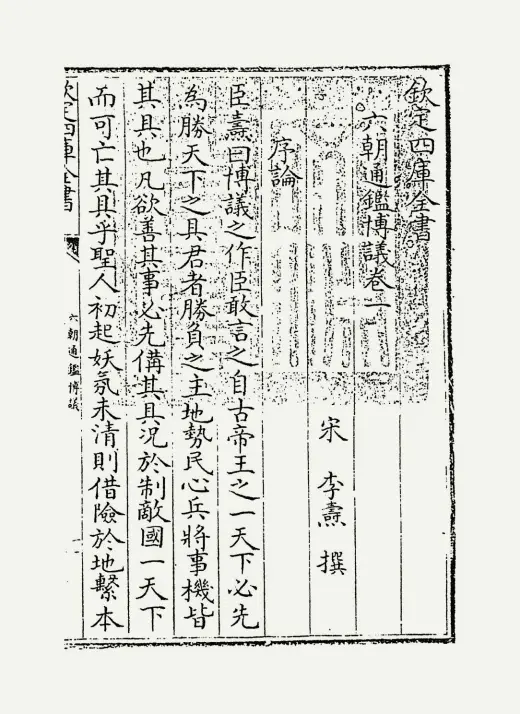 欽定四庫全書
六朝通鑑博議卷一
宋 李燾 撰
序論
臣燾曰博議之作臣敢言之自古帝王之一天下必先
為勝天下之具君者勝負之主地勢民心兵將事機皆
其具也凡欲善其事必先備其具況於制敵國一天下
而可亡其具乎聖人初起妖氛未清則借險於地繫本
欽定四庫全書
六朝通鑑博議